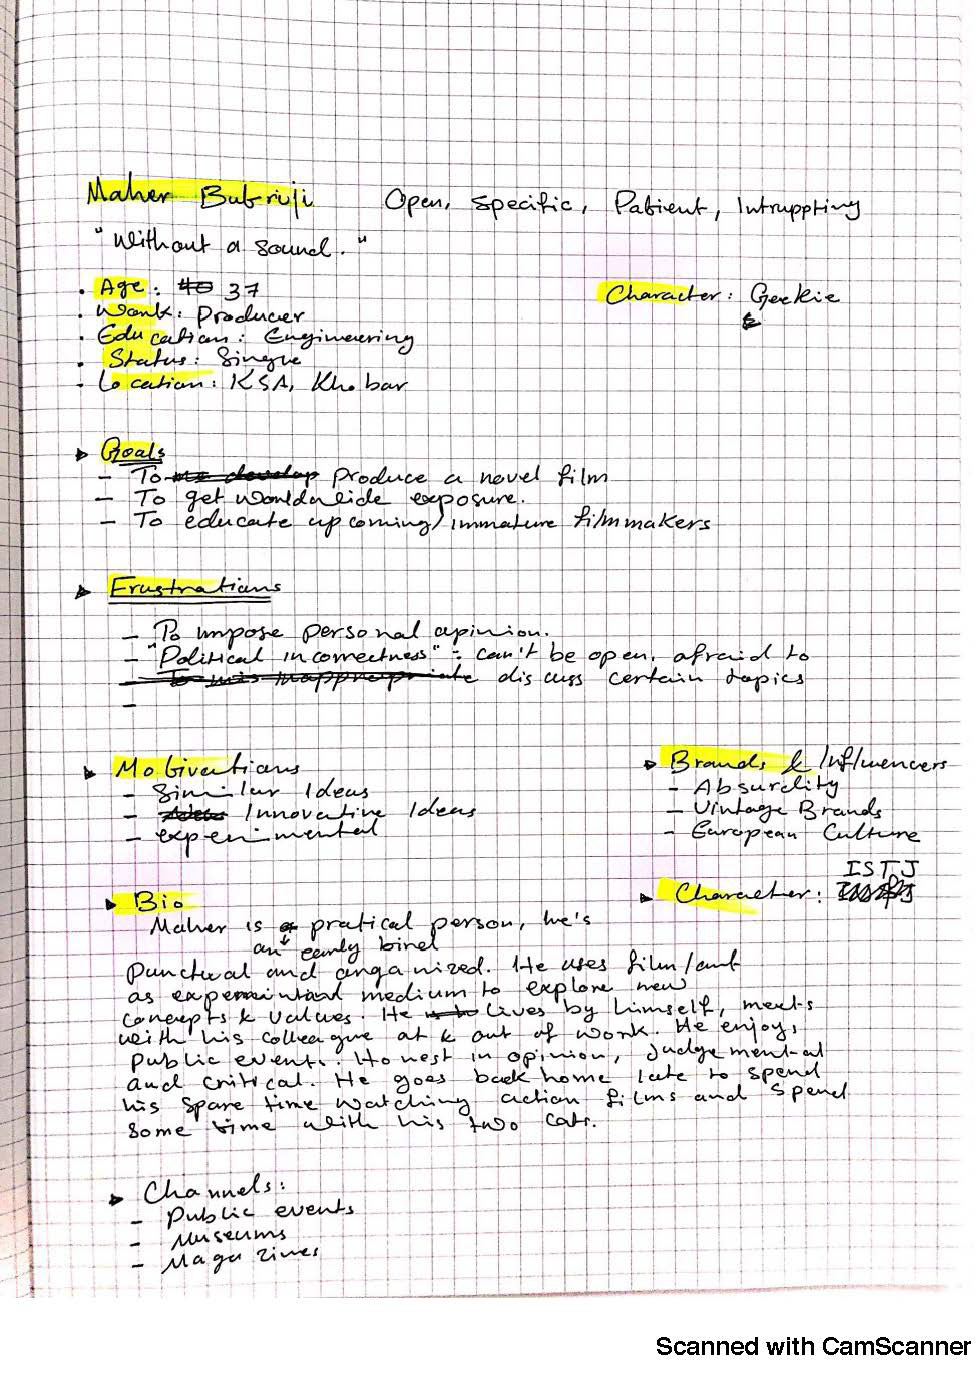 Maher Butruji Open, Specific, Patient, Intruppting
"Without a sound."
. Age: 40 37 Character: Geekie
. Work: Producer
. Education: Engineering
. Status: Single
. Location: KSA, Khobar
Goals
- To develop produce a novel film
- To get worldwide exposure.
- To educate upcoming/immature filmmakers
Frustrations
- To impose personal opinion.
- "Political incorrectness" = can't be open, afraid to
- discuss certain topics
-
Motivations Brands & Influencers
- Similar Ideas - Absurdity
- Innovative Ideas - Vintage Brands
- experimental - European Culture
ISTJ
Bio Character:
Maher is a pratical person, he's
an early bird
punctual and organized. He uses film/art
as experimental medium to explore new
concepts & values. He lives by himself, meets
with his colleague at & out of work. He enjoys
public events. Honest in opinion, Judgemental
and critical. He goes back home late to spend
his spare time watching action films and spend
some time with his two cats.
Channels:
- Public events
- Museums
- Magazines
Scanned with CamScanner